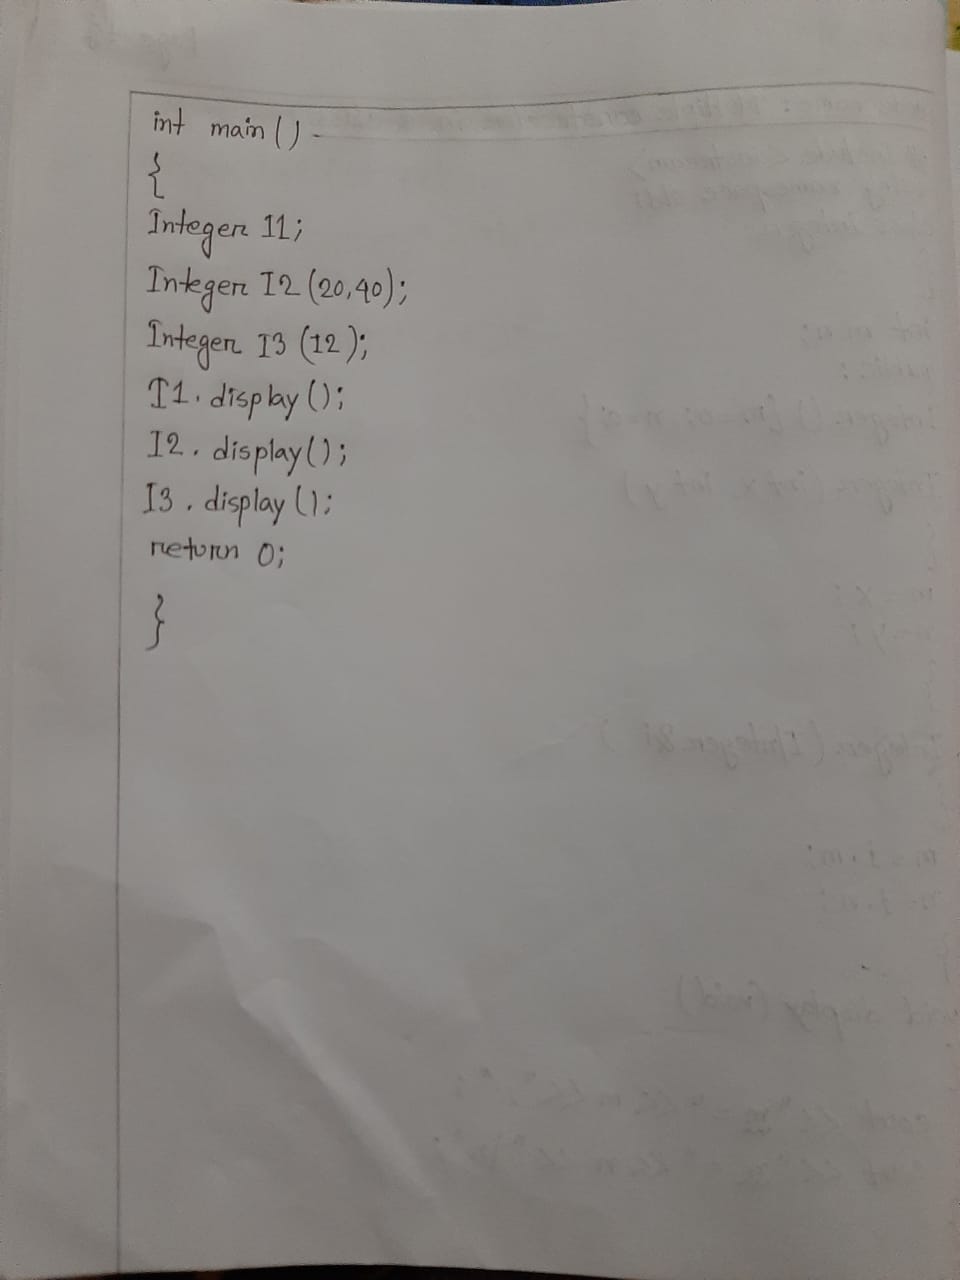 int main()
{
Integer I1;
Integer I2 (20,40);
Integer I3 (12);
I1. display ();
I2. display();
I3. display ();
return 0;
}